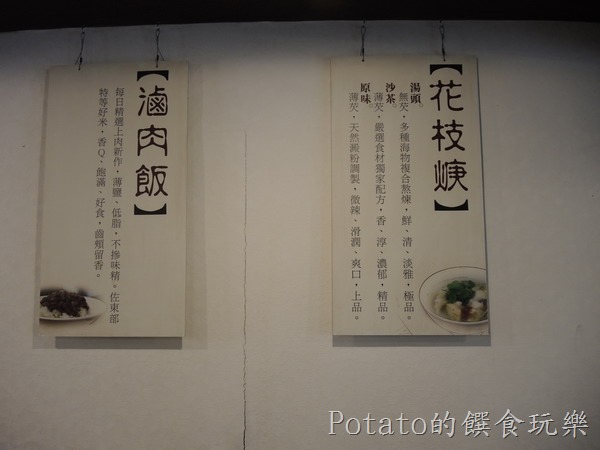 【花枝焿】
湯頭。
無芡,多種海物複合熬煉,鮮、清、淡雅,極品。
沙茶。
薄芡,嚴選食材獨家配方,香、淳、濃郁,精品。
原味。
薄芡,天然澱粉調製,微辣、滑潤、爽口,上品。
【滷肉飯】
每日精選上肉新作,薄鹽、低脂,不摻味精。佐東部
特等好米,香Q、飽滿、好食,齒頰留香。
Potato的饌食玩樂